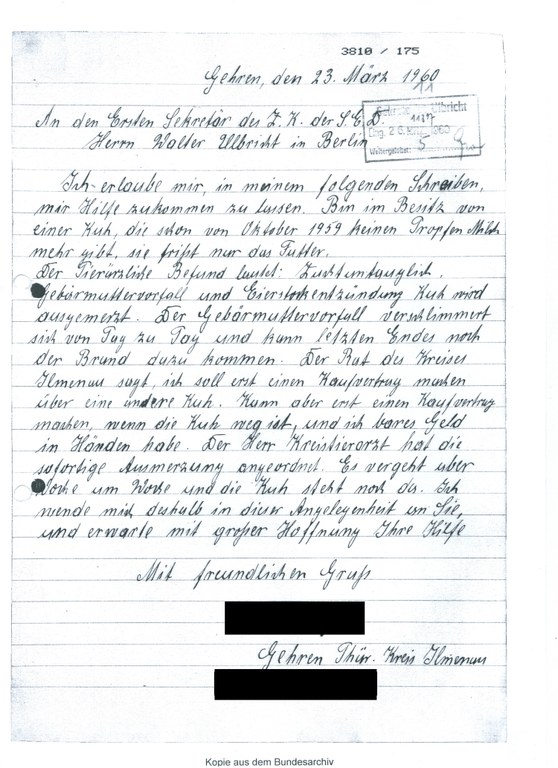 3810 / 175
Gehren, den 23. März 1960
An den Ersten Sekretär des Z.K. der S.E.D.
Herrn Walter Ulbricht in Berlin
Ulbricht
1137
Eing. 2 6. MRZ. 1960
Ich erlaube mir, in meinem folgenden Schreiben,
mir Hilfe zukommen zu lassen. Bin im Besitz von
einer Kuh, die schon von Oktober 1959 keinen Tropfen Milch
mehr gibt, sie frißt nur das Futter.
Der Tierärzliche Befund lautet: Zuchtuntauglich,
Gebärmuttervorfall und Eierstockentzündung Kuh wird
ausgemerzt. Der Gebärmuttervorfall verschlimmert
sich von Tag zu Tag und kann letzten Endes noch
der Brand dazu kommen. Der Rat des Kreises
Ilmenau sagt, ich soll erst einen Kaufvertrag machen
über eine andere Kuh. Kann aber erst einen Kaufvertrag
machen, wenn die Kuh weg ist, und ich bares Geld
in Händen habe. Der Herr Kreistierarzt hat die
sofortige Ausmerzung angeordnet. Es vergeht aber
Woche um Woche und die Kuh steht noch da. Ich
wende mich deshalb in dieser Angelegenheit an Sie,
und erwarte mit großer Hoffnung Ihre Hilfe
Mit freundlichen Gruß
Gehren Thür. Kreis Ilmenau
Kopie aus dem Bundesarchiv